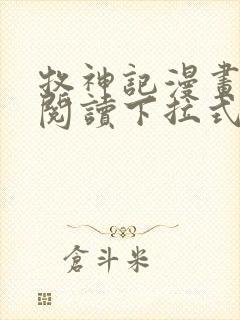 牧神記漫畫
閱讀下拉式
倉斗米